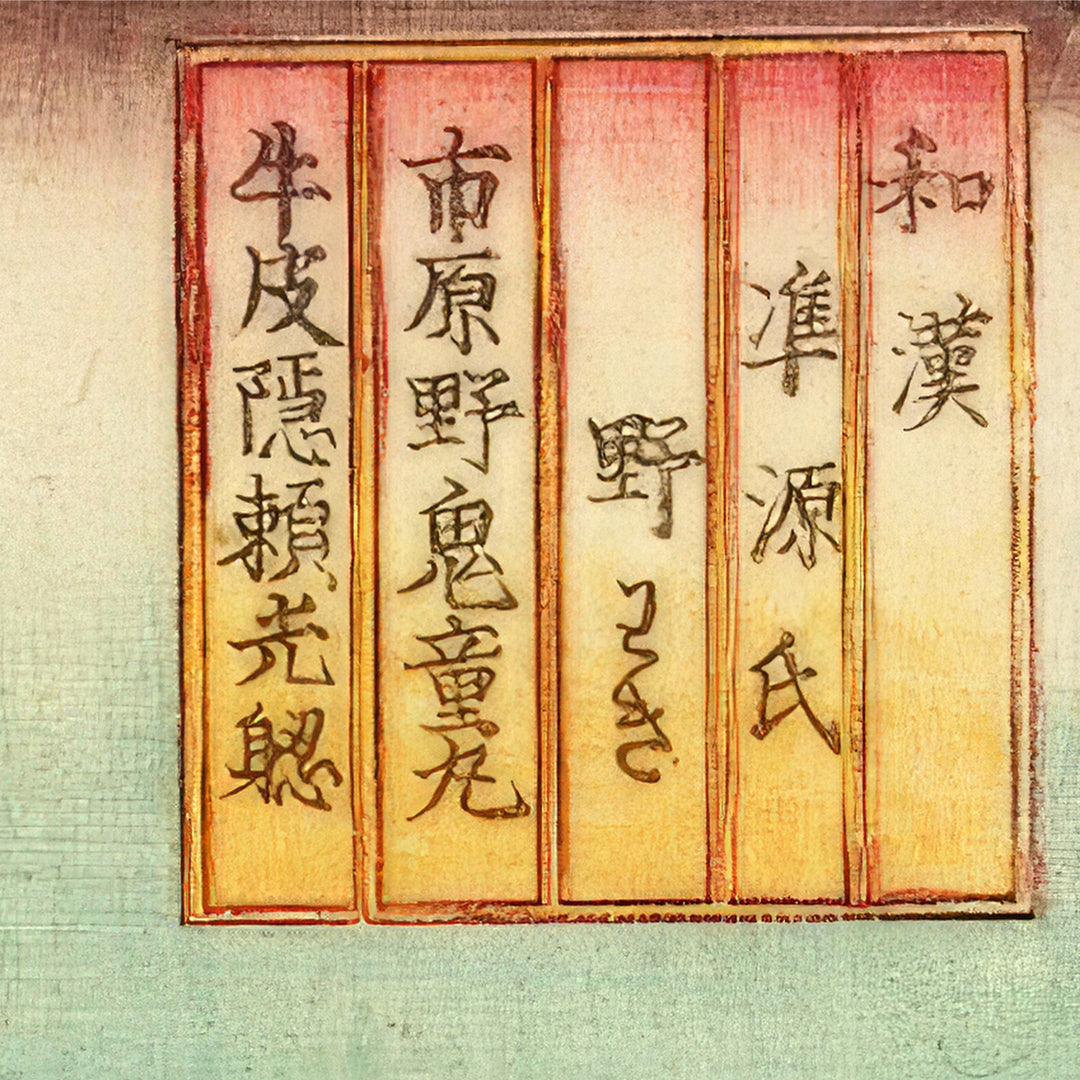 和漢
凖源氏
野わき
市原野鬼童丸
牛皮隠頼光躵